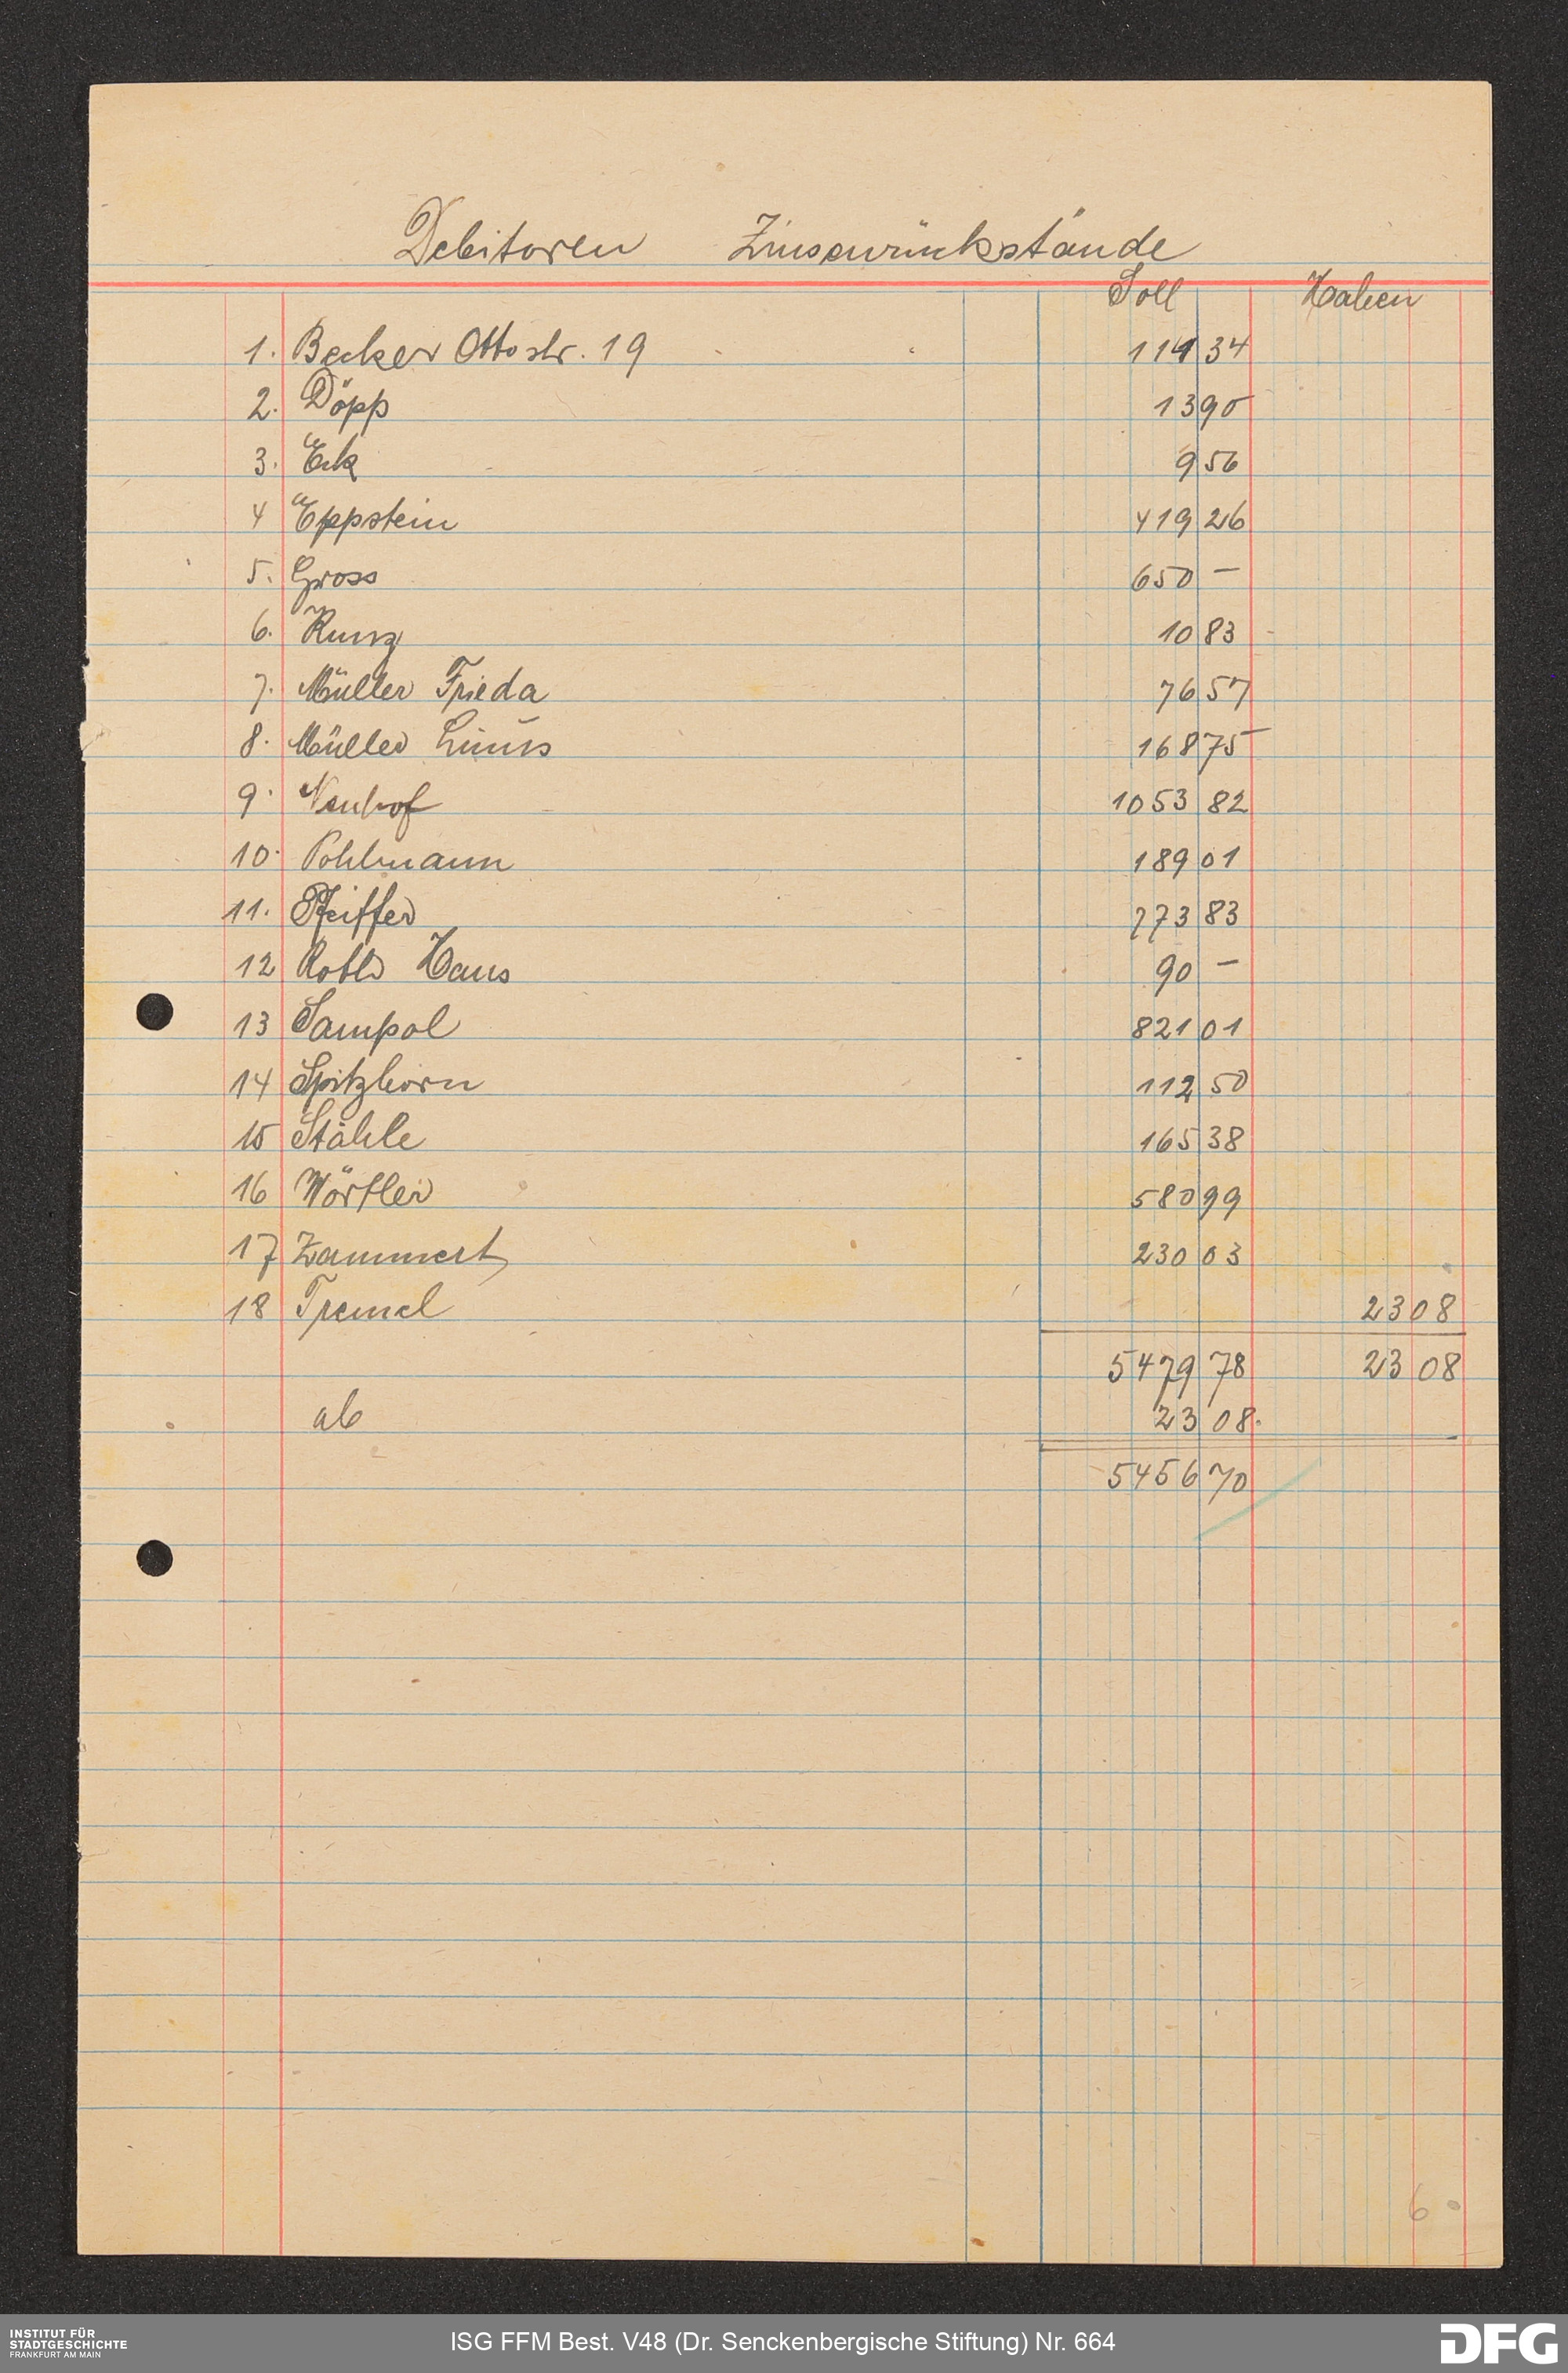 Debitoren Zinsenrückstände
Soll Haben
1. Becker Ottostr. 19 114 34
2. Döpp 13 90
3. Eck 9 56
4 Eppstein 419 26
5. Gross 650 —
6. Kunz 10 83
7. Müller Frieda 76 57
8. Müller Linus 168 75
9. Neuhof 1053 82
10. Pohlmann 189 01
11. Pfeiffer 773 83
12 Roth Hans 90 —
13 Sampol 821 01
14 Spitzhorn 112 50
15 Stähle 165 38
16 Wörtler 580 99
17 Zammert 230 03
18 Tremel 23 08
5479 78 23 08
ab 23 08.
5456 70
6
INSTITUT FÜR
STADTGESCHICHTE
FRANKFURT AM MAIN
ISG FFM Best. V48 (Dr. Senckenbergische Stiftung) Nr. 664
DFG